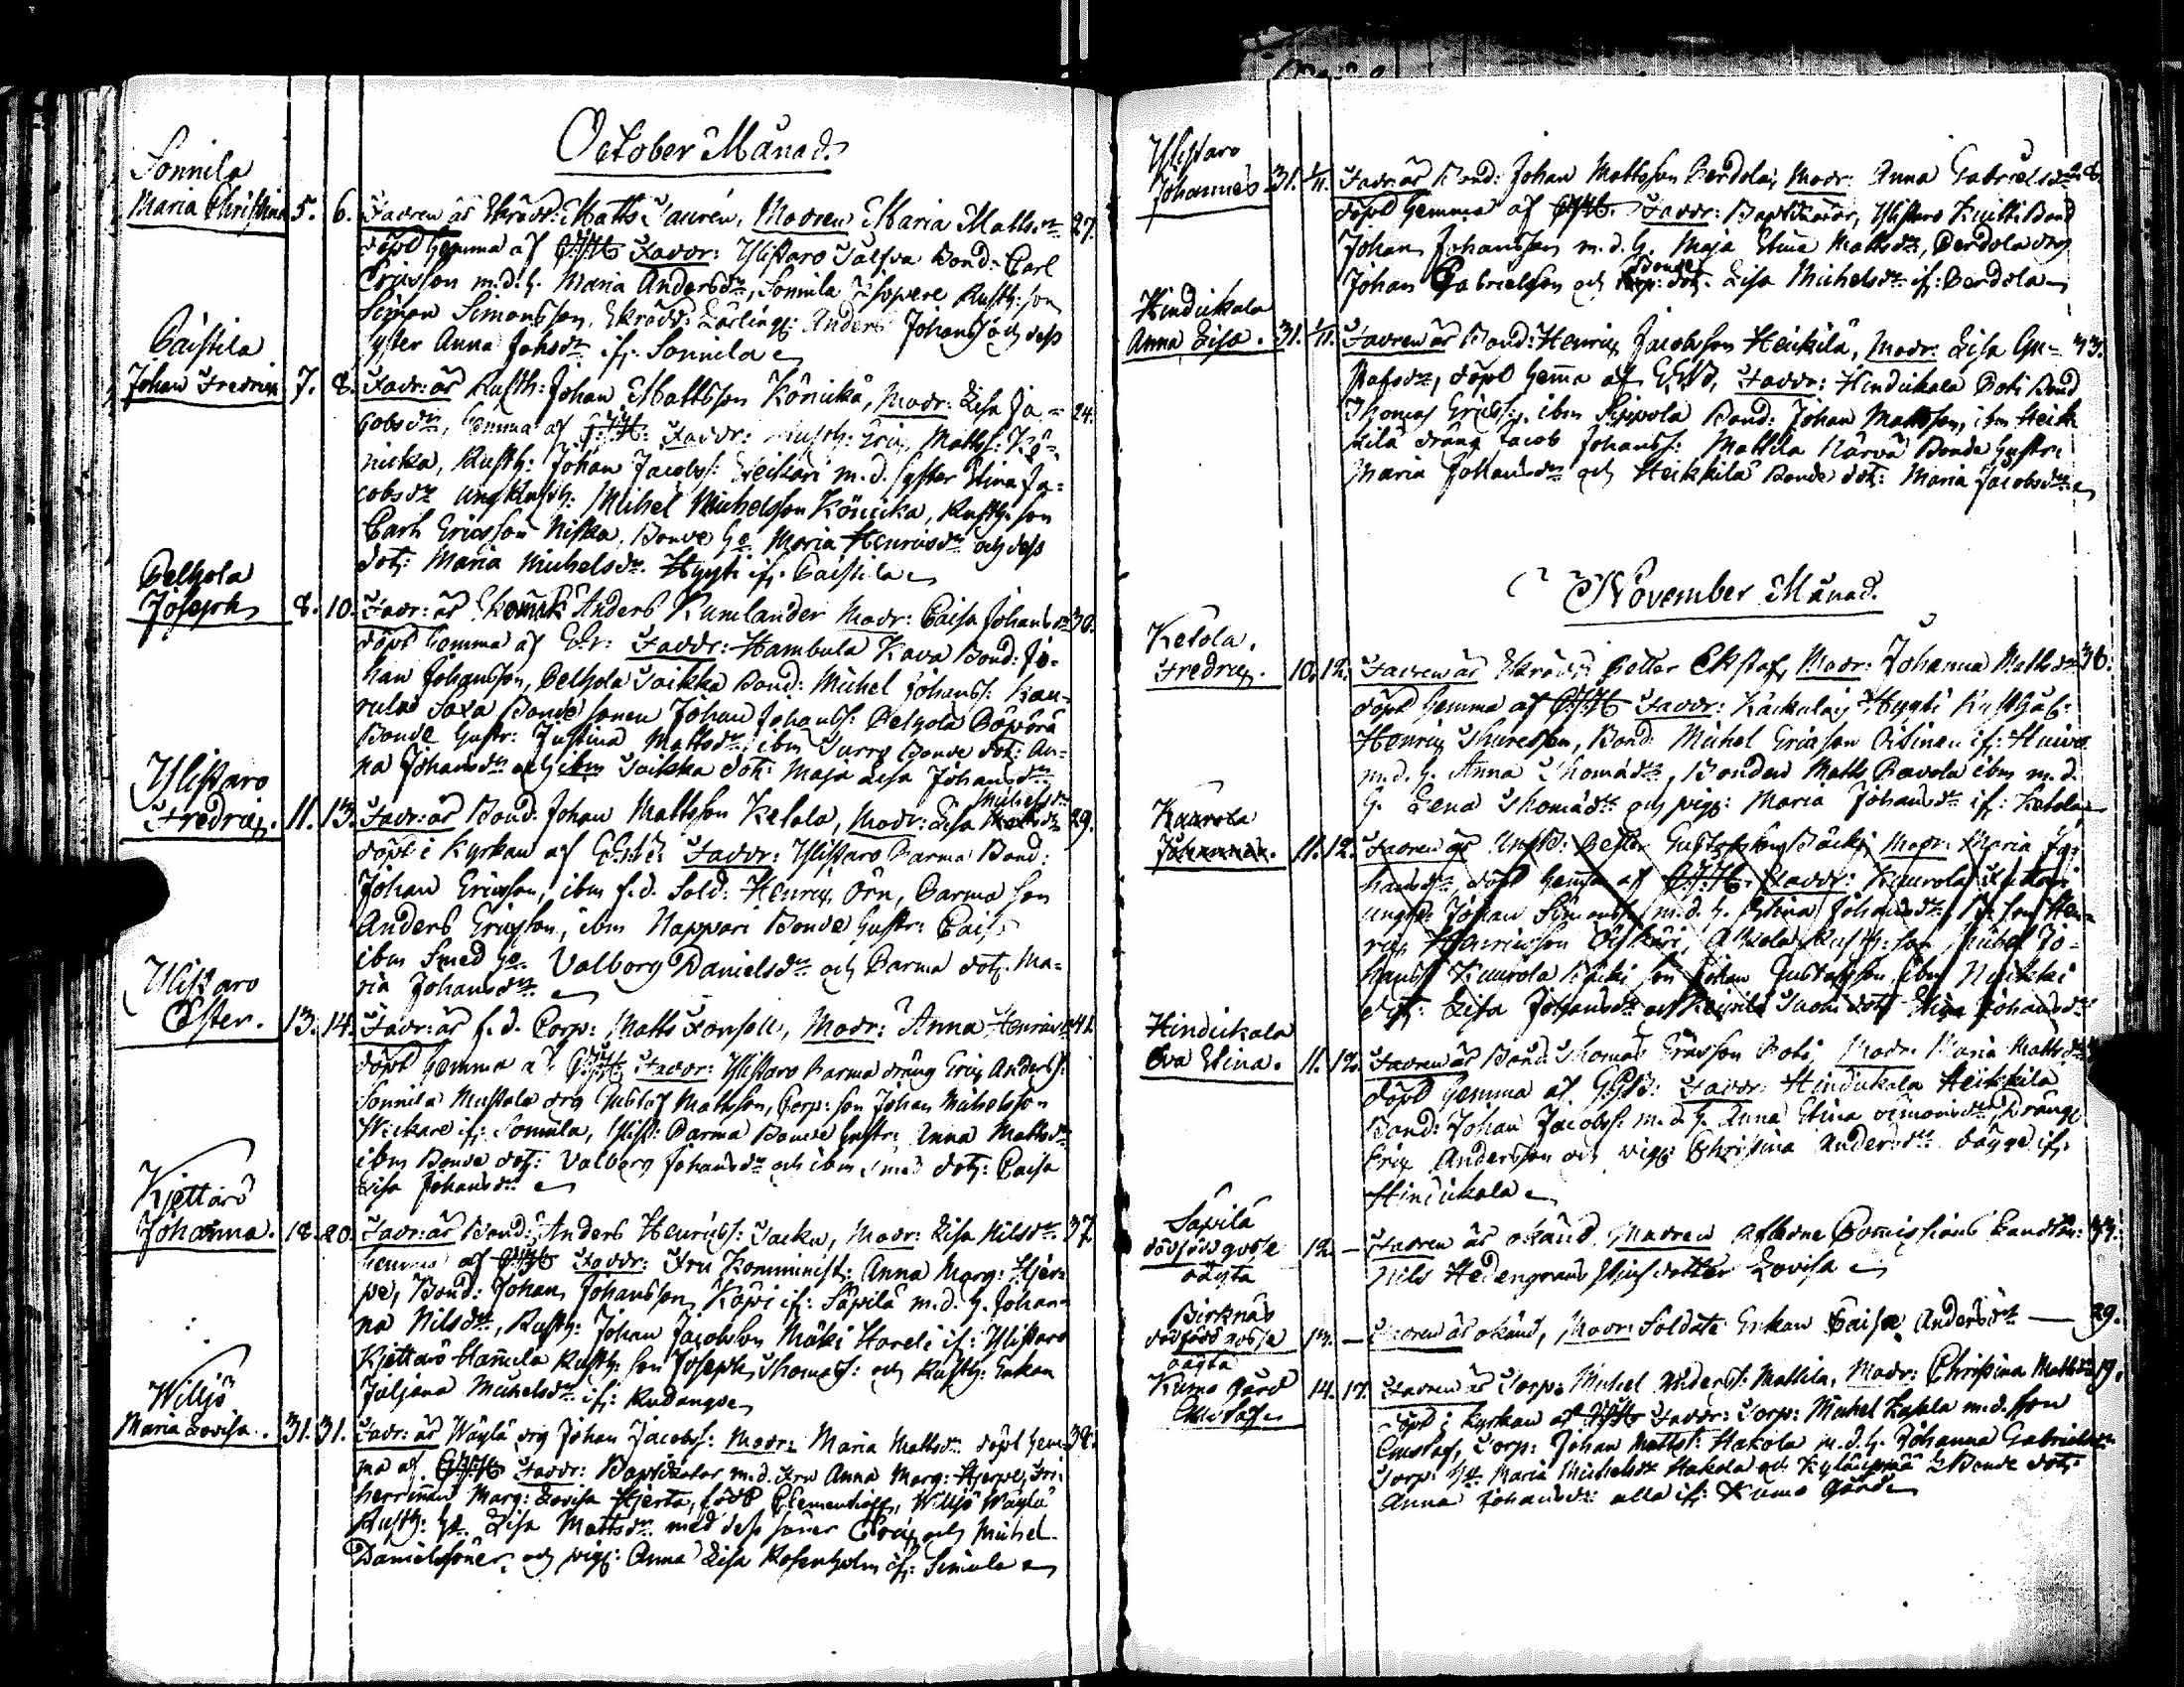 October Månad.
Sonnila
Maria Christina 5. 6. Fadren är Skrädd: Matts Laurén, Modren Maria Mattsdr 27.
döpt hemma af Faddr: Ylistaro Bond: Carl
Ericsson m.d.h. Maria Andersdr, Sonnila Rusth: son
Simon Simonsson, Skrädd: Lärling: Anders Johanss och dess
syster Anna Johsdr if: Sonnila
Paistila
Johan Fredric 7. 8. Fadr: är Rusth: Johan Mattsson Könicka, Modr: Lisa Ja= 24.
cobsdr, hemma af Faddr: Rusth: Eric Matts: Kö=
nicka, Rusth: Johan Jacobs: m.d. syster Stina Ja=
cobsdr ung Rusth: Michel Michelsson Könicka, Rusth: son
Carl Ericsson Niska, Bonde h. Maria Henricsdr och dess
dotr: Maria Michelsdr Hyyti if: Paistila
Pelhola
Joseph 8. 10. Fadr: är Anders Kumlander Modr: Caisa Johansdr 30.
döpt hemma af Faddr: Hambula Kava Bond: Jo=
han Johansson, Pelhola Bond: Michel Johans:
Saxa Bonde sonen Johan Johans: Pelhola
Bonde hustr: Justina Mattsdr, ibm Bonde dotr: An=
na Johansdr och ibm dotr: Maja Lisa Johansdr
Ylistaro
Fredric. 11. 13. Fadr: är Bond: Johan Mattsson Ketola, Modr: Lisa Michelsdr 29.
döpt i Kyrkan af Faddr: Ylistaro Parma Bond:
Johan Ericsson, ibm f.d. Sold: Henric Örn, Parma son
Anders Ericsson, ibm Nappari Bonde hustr: Caisa
ibm Smed h. Valborg Danielsdr och Parma dotr: Ma=
ria Johansdr
Ylistaro
Ester. 13. 14. Fadr: är f.d. Corp: Matts Forsell, Modr: Anna Henricsdr 41.
döpt hemma af Faddr: Ylistaro Parma dräng Eric Anders:
Sonnila Mustala drg Gustaf Mattsson, Corp: son Johan Michelsson
if: Sonnila, Ylist: Parma Bonde hustr: Anna Mattsdr
ibm Bonde dotr: Valborg Johansdr och ibm Smed dotr: Caisa
Lisa Johansdr
Kjettärö
Johanna. 18. 20. Fadr: är Bond: Anders Henrics: Jacku, Modr: Lisa Nilsdr. 37.
hemma af Faddr: Fru Anna Marg: Hjer=
pe, Bond: Johan Johansson Käpi if: Säpilä m.d.h. Johan=
na Nilsdr, Rusth: Johan Jacobsson Mäki Hoveli if: Ylistaro
Kjettärö Hannula Rusth: son Joseph Thomas: och Rusth: Enkan
Juliana Michelsdr if: Rudangoe
Villjö
Maria Lovisa. 31. 31. Fadr: är Wäylä drg Johan Jacobs: Modr: Maria Mattsdr döpt hem 38.
ma af Faddr: m.d. Fru Anna Marg: Hjerpe, Fri
herrinnan Marg: Lovisa Hjerta, född Clementieff, Villjö Wäylä
Rusth: h. Lisa Mattsdr med dess söner Eric och Michel
Danielssöner, och pig: Anna Lisa Rosenholm if: Simula
Ylistaro
Johannes 31. 1/11. Fadr: är Bond: Johan Mattsson Perdola, Modr: Anna Gabrielsdr 28.
döpt hemma af Faddr: Ylistaro Kuitti Bond
Johan Johansson m.d.h. Maja Stina Mattsdr, Perdola drg
Johan Gabrielsson och Bonde dotr: Lisa Michelsdr if: Perdola
Hindickala
Anna Lisa. 31. 1/11. Fadren är Bond: Henric Jacobsson Heikkilä, Modr: Lisa Gu= 33.
stafsdr, döpt hemma af Faddr: Hindickala Poti Bond
Thomas Erics:, ibm Seppola Bond: Johan Mattsson, ibm Heik
kilä dräng Jacob Johans: Mattila Närvä Bonde hustr:
Maria Johansdr och Heikkilä Bonde dotr: Maria Jacobsdr
November Månad.
Ketola.
Fredric. 10. 12. Fadren är Skrädd: Petter Ekstaf, Modr: Johanna Mattsdr 36.
döpt hemma af Faddr: Käckulais Hyyti Rusthåll:
Henric Thuresson, Bond: Michel Ericsson Pitinen if:
m.d.h. Anna Thomasdr, Bonden Matts Pavola ibm m.d.
h. Lena Thomasdr och pig: Maria Johansdr if: Ketola
Kaurola
11. 12. Fadren är Petter Gustafsson Modr: Maria Jo=
hansdr döpt hemma af Faddr: Kaurola
Johan Simons: m.d.h. Stina Johansdr, R: son Hen=
ric Henricsson Rusth: son Michel Jo=
hans: Kaurola son Johan Gustafsson ibm
dotr: Lisa Johansdr och dotr Stina Johansdr
Hindickala
Eva Stina. 11. 12. Fadren är Bond: Thomas Ericsson Poti, Modr: Maria Mattsdr
döpt hemma af Faddr: Hindickala Heikkilä
Bond: Johan Jacobs: m.d.h. Anna Stina Simonsdr, Dräng:
Eric Andersson och pig: Christina Andersdr bägge if:
Hindickala
Säpilä
dödfödd gosse 12. — Fadren är okänd, Modren afledne Commissions Landtm: 33.
oägta Nils Hedengrans Styfdotter Lovisa
Birknäs
dödfödd gosse 13. — Fadren är okänd, Modr: Soldate Enkan Caisa Andersdr — 39.
oägta
Kumo gård
Gustaf 14. 17. Fadren är Torp: Michel Anders: Mattila, Modr: Christina Mattsdr 19.
Döpt i Kyrkan af Faddr: Torp: Michel m.d. son
Gustaf, Torp: Johan Matts: Hakola m.d.h. Johanna Gabrielsdr
Torp: h. Maria Michelsdr Hakola och Bonde dotr:
Anna Johansdr alla if: Kumo Gård